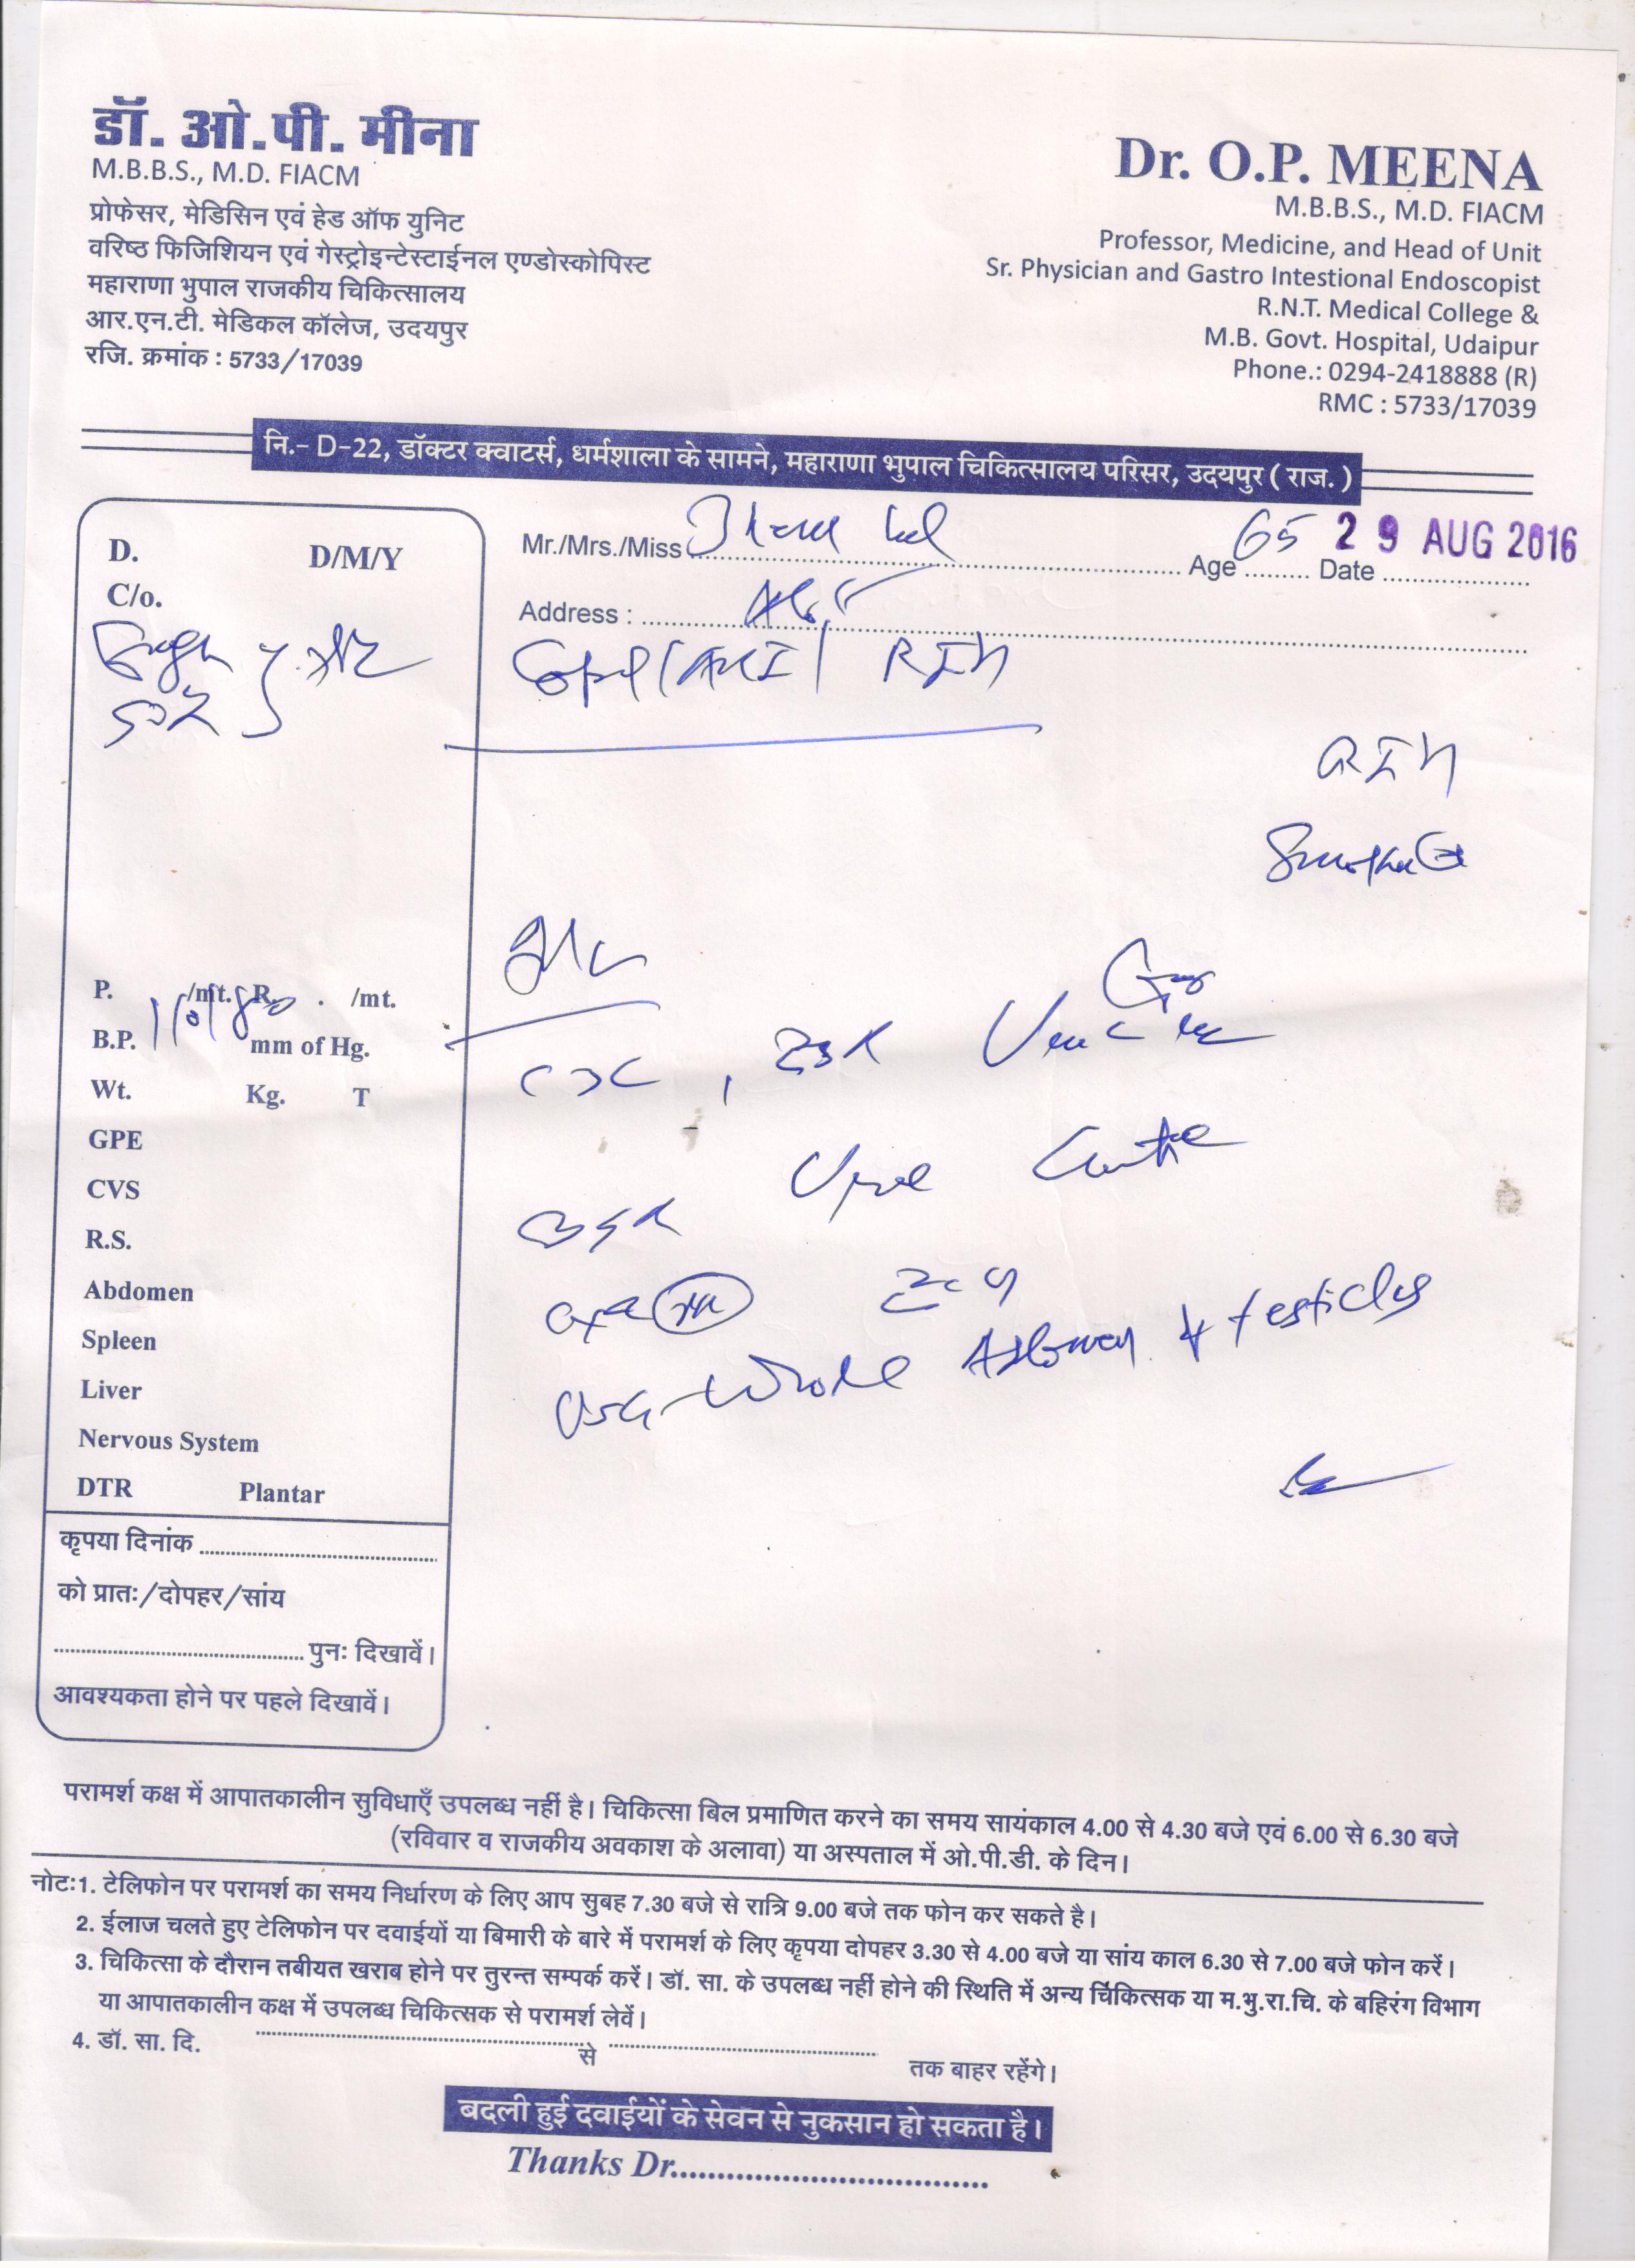 डॉ. ओ.पी. मीना
M.B.B.S., M.D. FIACM
प्रोफेसर, मेडिसिन एवं हेड ऑफ युनिट
वरिष्ठ फिजिशियन एवं गेस्ट्रोइन्टेस्टाईनल एण्डोस्कोपिस्ट
महाराणा भुपाल राजकीय चिकित्सालय
आर.एन.टी. मेडिकल कॉलेज, उदयपुर
रजि. क्रमांक : 5733/17039
Dr. O.P. MEENA
M.B.B.S., M.D. FIACM
Professor, Medicine, and Head of Unit
Sr. Physician and Gastro Intestional Endoscopist
R.N.T. Medical College &
M.B. Govt. Hospital, Udaipur
Phone.: 0294-2418888 (R)
RMC : 5733/17039
नि.- D-22, डॉक्टर क्वाटर्स, धर्मशाला के सामने, महाराणा भुपाल चिकित्सालय परिसर, उदयपुर ( राज. )
Mr./Mrs./Miss Age 65 Date 29 AUG 2016
Address :
D. D/M/Y
C/o.
P. /mt. R. . /mt.
B.P. 110/80 mm of Hg.
Wt. Kg. T
GPE
CVS
R.S.
Abdomen
Spleen
Liver
Nervous System
DTR Plantar
कृपया दिनांक
को प्रातः/दोपहर/सांय
पुनः दिखावें।
आवश्यकता होने पर पहले दिखावें।
USG Whole Abdomen & testicles
परामर्श कक्ष में आपातकालीन सुविधाएँ उपलब्ध नहीं है। चिकित्सा बिल प्रमाणित करने का समय सायंकाल 4.00 से 4.30 बजे एवं 6.00 से 6.30 बजे
(रविवार व राजकीय अवकाश के अलावा) या अस्पताल में ओ.पी.डी. के दिन।
नोटः1. टेलिफोन पर परामर्श का समय निर्धारण के लिए आप सुबह 7.30 बजे से रात्रि 9.00 बजे तक फोन कर सकते है।
2. ईलाज चलते हुए टेलिफोन पर दवाईयों या बिमारी के बारे में परामर्श के लिए कृपया दोपहर 3.30 से 4.00 बजे या सांय काल 6.30 से 7.00 बजे फोन करें।
3. चिकित्सा के दौरान तबीयत खराब होने पर तुरन्त सम्पर्क करें। डॉ. सा. के उपलब्ध नहीं होने की स्थिति में अन्य चिकित्सक या म.भु.रा.चि. के बहिरंग विभाग
या आपातकालीन कक्ष में उपलब्ध चिकित्सक से परामर्श लेवें।
4. डॉ. सा. दि. से तक बाहर रहेंगे।
बदली हुई दवाईयों के सेवन से नुकसान हो सकता है।
Thanks Dr.